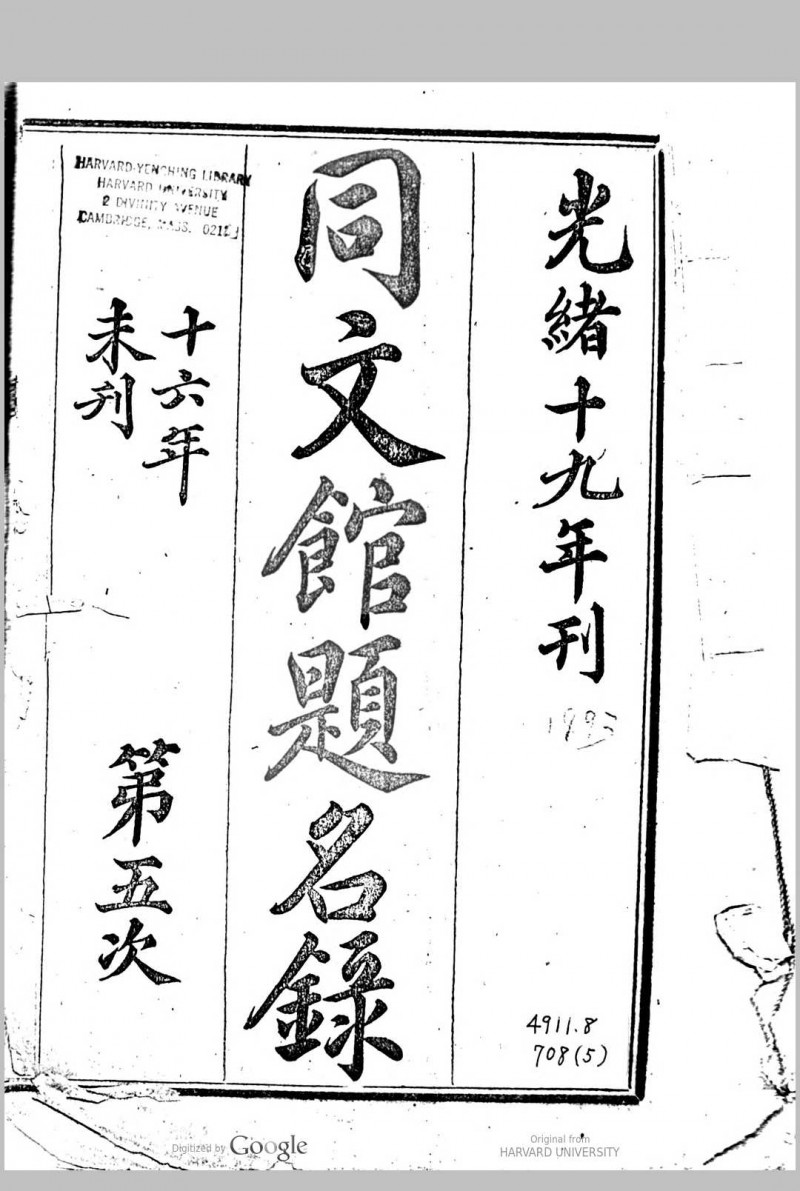 光緒十九年刊
同文館題名錄
十六年
未刊
第五次
HARVARD-YENCHING LIBRARY
HARVARD UNIVERSITY
2 DIVINITY AVENUE
CAMBRIDGE, MASS. 02138
4911.8
708(5)
Digitized by Google
Original from
HARVARD UNIVERSITY